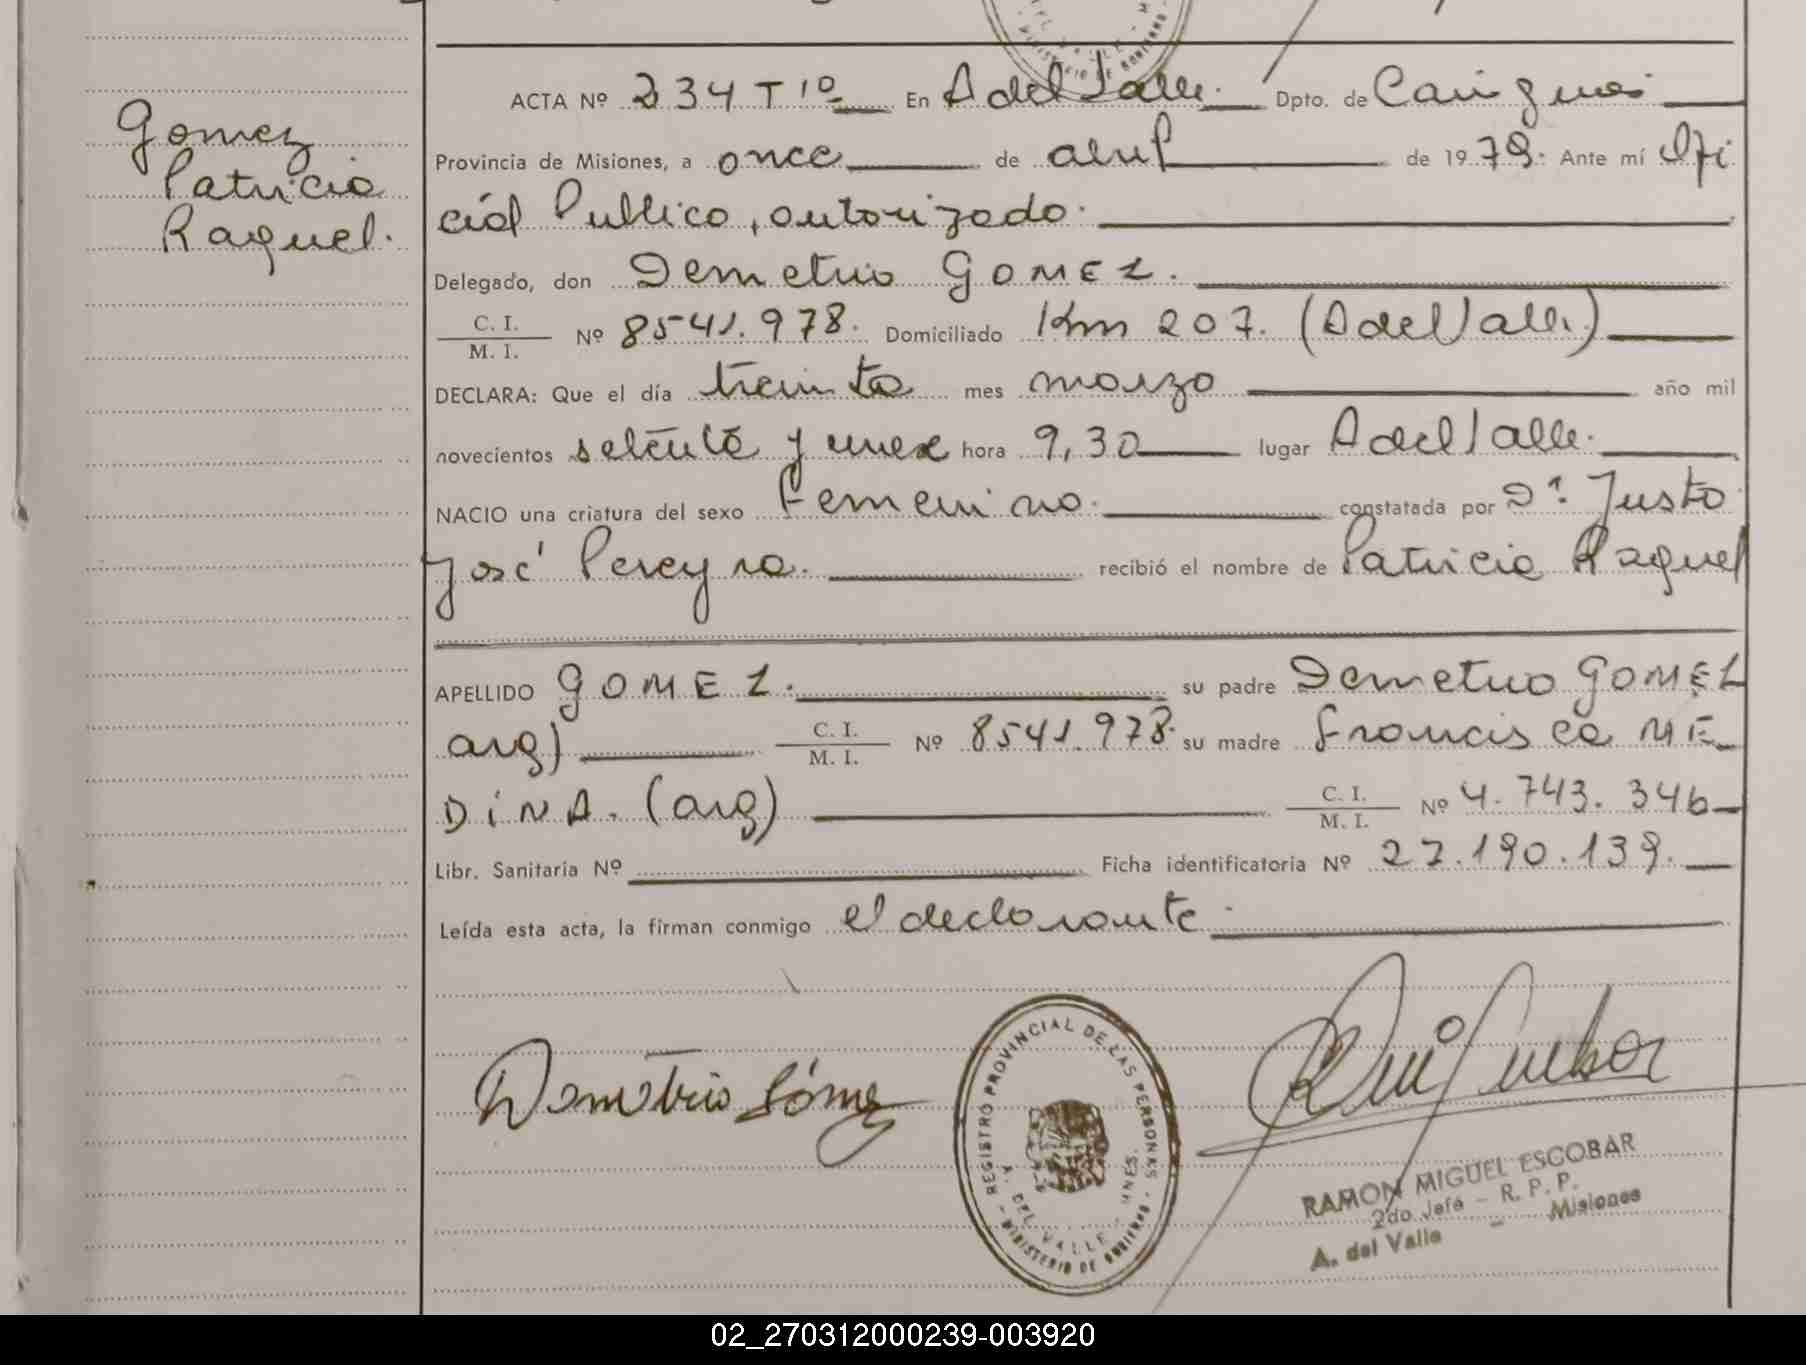 Gomez
Patricia
Raquel.
ACTA Nº 234 Tº 1º En A del Valle. Dpto. de Cainguas
Provincia de Misiones, a once de abril de 1979. Ante mí Ofi
cial Publico, autorizado.
Delegado, don Demetrio GOMEZ.
C. I.
M. I. Nº 8541.978. Domiciliado Km 207. (A del Valle.)
DECLARA: Que el día treinta mes marzo año mil
novecientos setenta y nueve hora 9,30 lugar A del Valle.
NACIO una criatura del sexo Femenino. constatada por Dr. Justo
José Pereyra. recibió el nombre de Patricia Raquel
APELLIDO GOMEZ. su padre Demetrio GOMEZ
arg) C. I.
M. I. Nº 8541.978. su madre Francisca ME_
DINA. (arg) C. I.
M. I. Nº 4.743.346
Libr. Sanitaria Nº Ficha identificatoria Nº 27.190.139.
Leída esta acta, la firman conmigo el declarante.
Demetrio Gómez
REGISTRO PROVINCIAL DE LAS PERSONAS
A. DEL VALLE - MNES.
MINISTERIO DE GOBIERNO
RAMON MIGUEL ESCOBAR
2do Jefe - R. P. P.
A. del Valle - Misiones
02_270312000239-003920